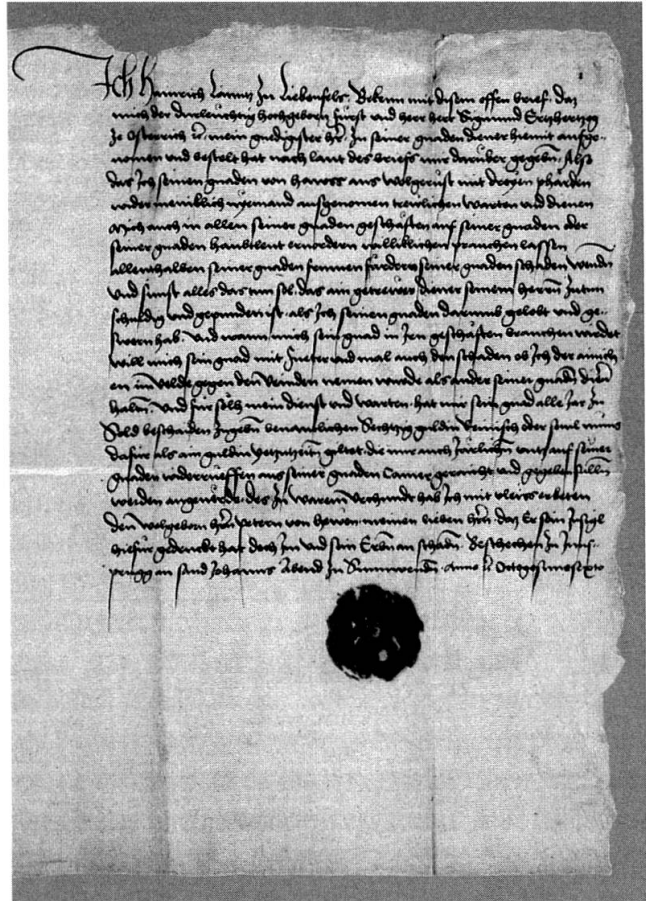 Ich Hainrich Lanntz zu Liebenfels. Bekenn mit disem offen brief. daz
mich der durleuchtig hochgeborn Fürst und herr herr Sigmund Ertzhertzog
ze Osterrich etc. mein gnedigster hr. zu seiner gnaden diener hiemit aufge-
nomen und bestelt hat nach laut des briefs mir darüber gegebn. Also
das Ich seinen gnaden von hawss aus wolgerüst mit dreyen phärden
wider meniklich nyemand ausgenomen trewlichen warten und dienen
Mich auch in allen seiner gnaden geschäften auf seiner gnaden oder
seiner gnaden haubtleut ervordern williklichen prauchen lassen
allenthalben seiner gnaden frummen fürdern seiner gnaden schaden wendn
Und sunst alles das tun sol. das ain getrewer diener seinem herrn zutun
schuldig und gepunden ist. als Ich seinen gnaden darumb gelobt und ge-
sworn hab. Und wann mich sein gnad in Iren geschäften brauchen wirdet
will mich sein gnad mit fueter und mal auch den schaden ob Ich der ainich
en im velde gegen den veinden nemen wurde als ander seiner gnadn diener
haltn. Und für solh mein dienst und warten. hat mir sein gnad alle Jar zu
Sold beschaiden zugebn benantlichen Sechtzig guldin Reinisch oder sovil münz
dafür als ain guldin yetzuzeitn giltet. die mir auch Järlichn untz auf seiner
gnaden widerrueffen aus seiner gnaden Camer geraicht und gegeben sülln
werden angeverde. des zu warem Urchundt hab Ich mit vleiss erbeten
den wolgeborn hrn petern von hewen. meinen lieben hrn. daz Er sein Insigl
hiefür gedruckt hat doch Im und sein Erbn an schadn. Beschechen zu Inns-
prugg an sand Johanns Abend zu Sunnwendn. Anno etc Octogesimosexto